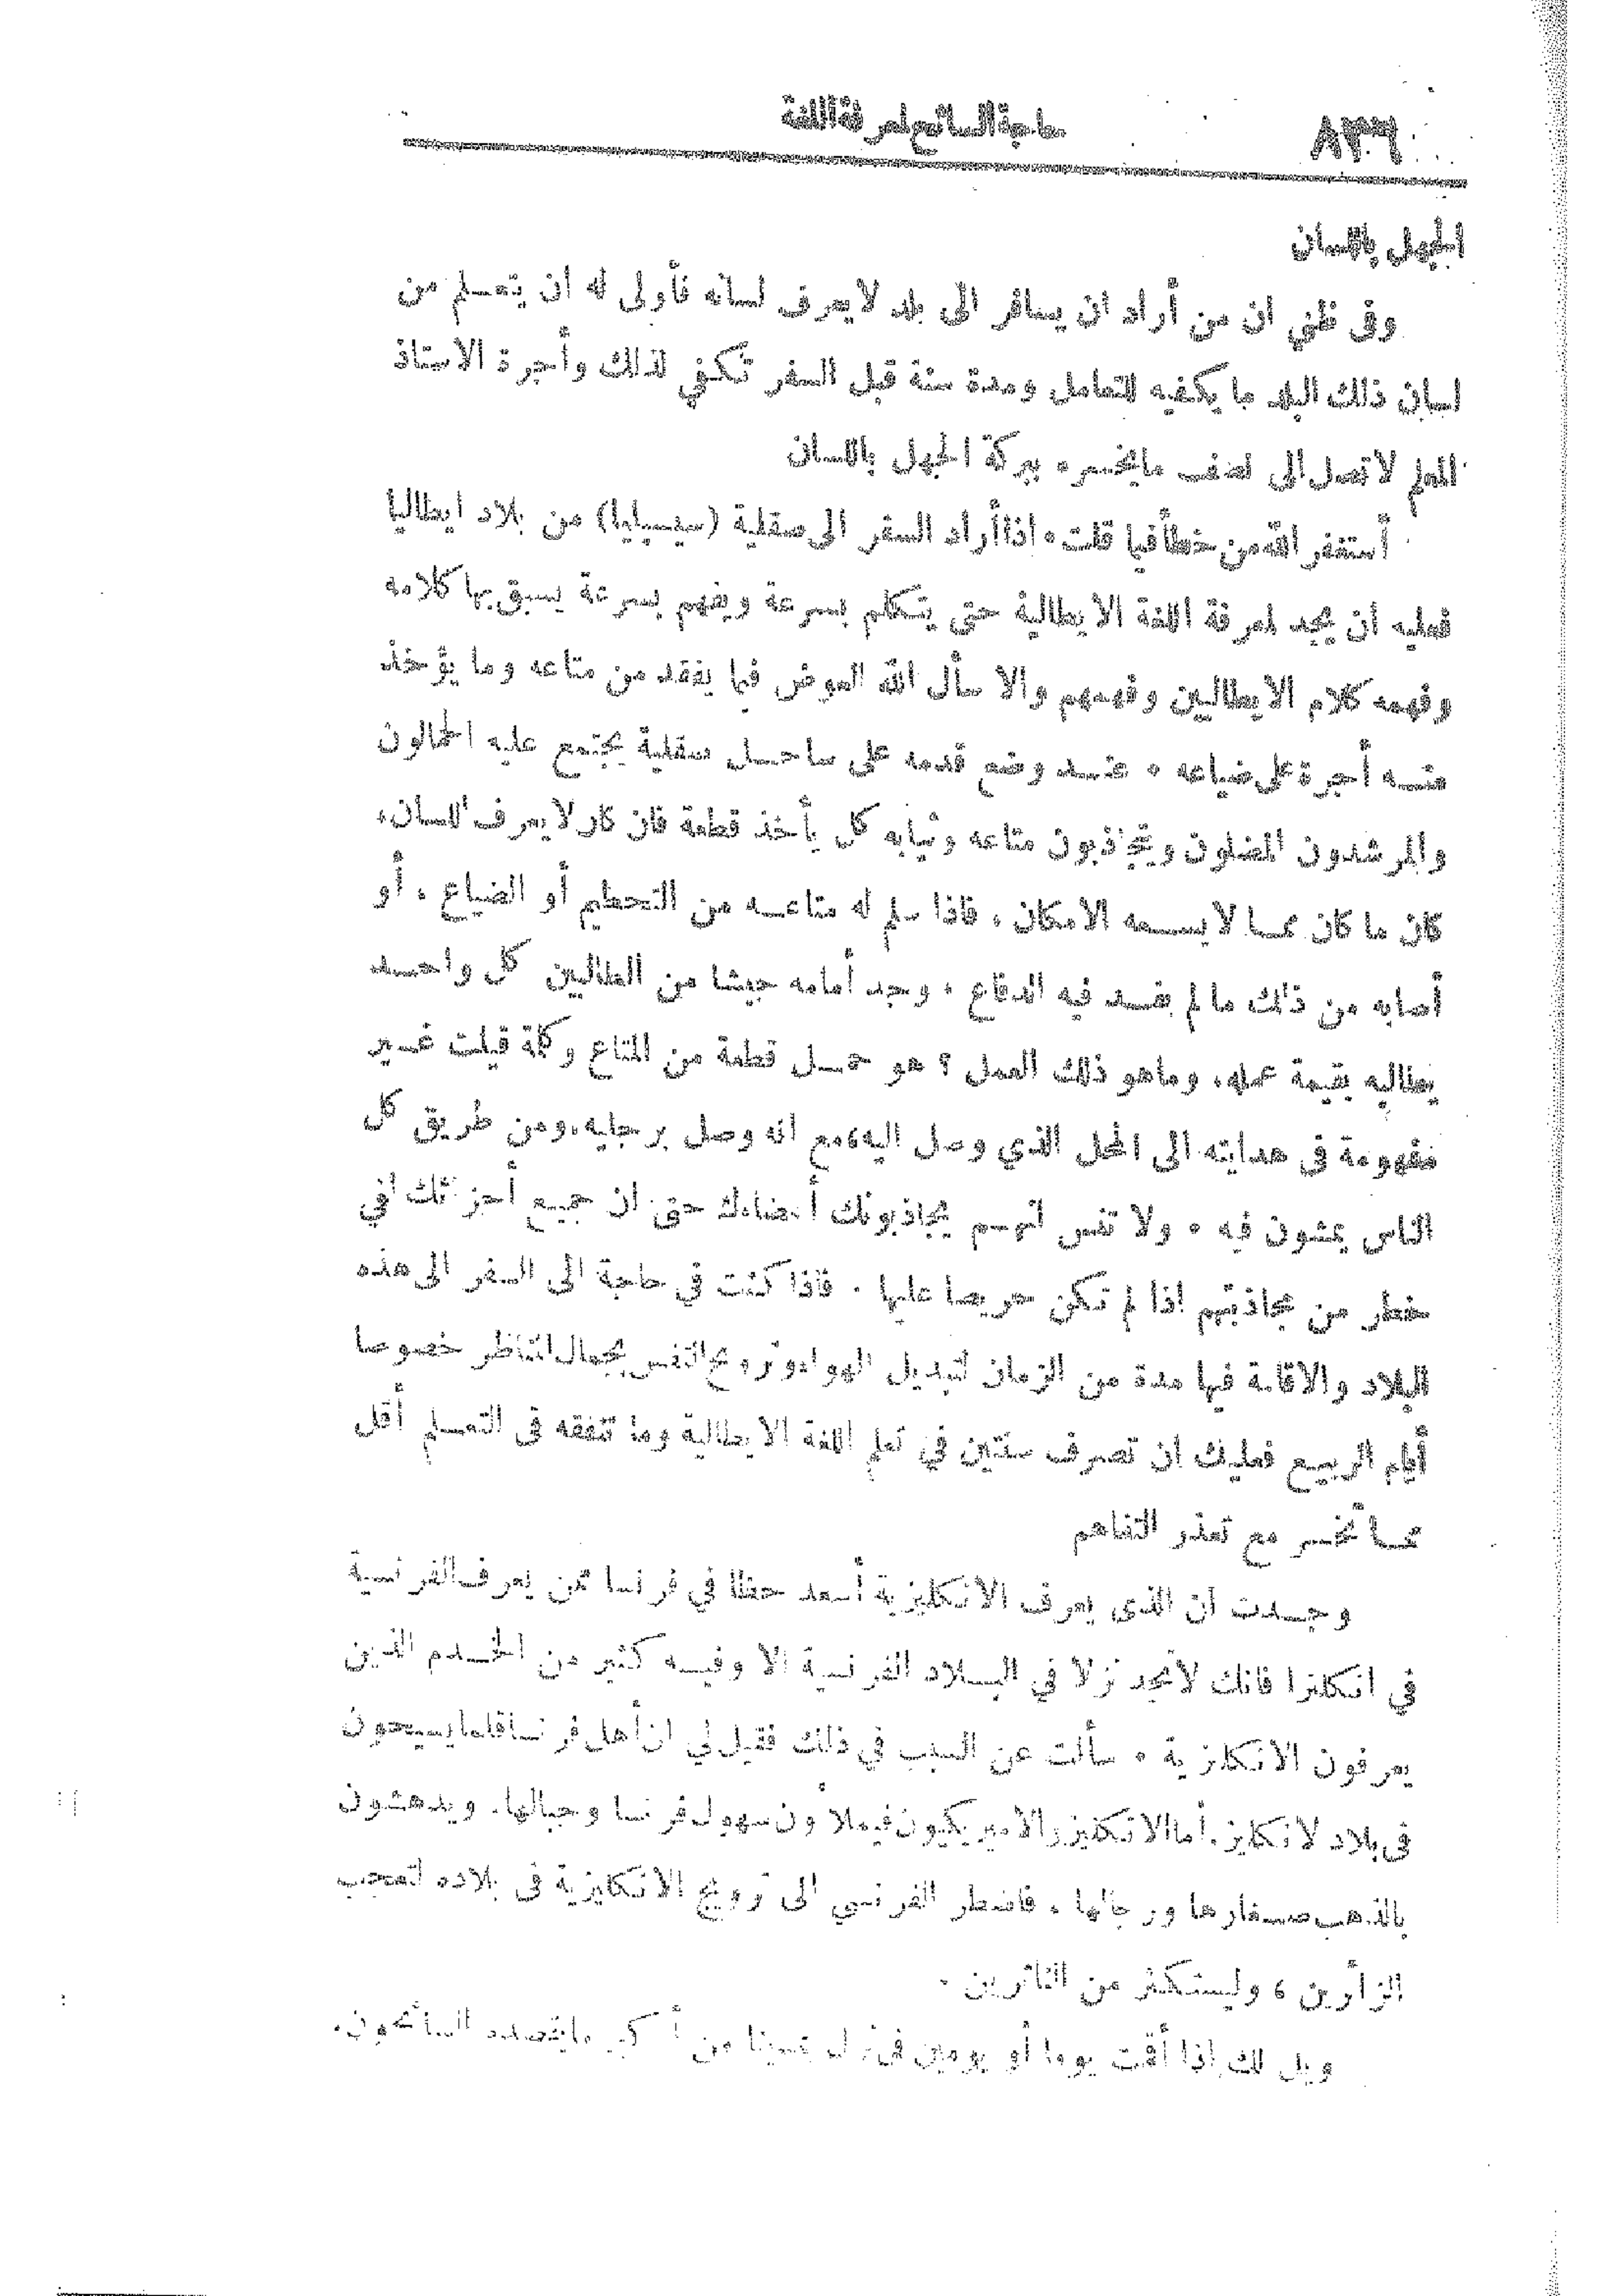 ٨٣٦
حاجة السائح لمعرفة اللغة
الجهل باللسان
وفى ظني ان من أراد ان يسافر الى بلد لا يعرف لسانه فأولى له ان يتعلم من
لسان ذلك البلد ما يكفيه للتعامل ومدة سنة قبل السفر تكفي لذلك وأجرة الاستاذ
المعلم لا تصل الى نصف ما يخسره ببركة الجهل باللسان
أستغفر الله من خطأ فيما قلت ٠ اذا أراد السفر الى صقلية (سيسيليا) من بلاد ايطاليا
فعليه أن يجد لمعرفة اللغة الايطالية حتى يتكلم بسرعة ويفهم بسرعة يسبق بها كلامه
وفهمه كلام الايطاليين وفهمهم والا سأل الله العوض فيما يفقد من متاعه وما يؤخذ
منه أجرة على ضياعه ٠ عند وضع قدمه على ساحل سقلية يجتمع عليه الحمالون
والمرشدون المضلون ويتجاذبون متاعه وثيابه كل يأخذ قطعة فان كان لا يعرف اللسان،
كان ما كان مما لا يسعه الامكان ، فاذا سلم له متاعه من التحطيم أو الضياع ، أو
أصابه من ذلك ما لم يفد فيه الدفاع ، وجد أمامه جيشا من الطالبين كل واحد
يطالبه بقيمة عمله، وماهو ذلك العمل ؟ هو حمل قطعة من المتاع وكلمة قيلت غير
مفهومة فى هدايته الى المحل الذي وصل اليه،مع انه وصل برجليه،ومن طريق كل
الناس يمشون فيه ٠ ولا تنس انهم يجاذبونك أعضاءك حتى ان جميع أجزائك في
خطر من مجاذبتهم اذا لم تكن حريصا عليها ٠ فاذا كنت في حاجة الى السفر الى هذه
البلاد والاقامة فيها مدة من الزمان لتبديل الهواء وترويح النفس بجمال المناظر خصوصا
أيام الربيع فعليك ان تصرف سنتين في تعلم اللغة الايطالية وما تنفقه فى التعلم أقل
مما تخسر مع تعذر التفاهم
وجدت ان الذى يعرف الانكليزية أسعد حظا في فرنسا ممن يعرف الفرنسية
في انكلترا فانك لا تجد نزلا في البلاد الفرنسية الا وفيه كثير من الخدم الذين
يعرفون الانكليزية ٠ سألت عن السبب في ذلك فقيل لي ان أهل فرنسا قلما يسيحون
فى بلاد الانكليز. أما الانكليز والاميريكيون فيملأون سهول فرنسا وجبالها، ويدهشون
بالذهب صغارها ورجالها ، فاضطر الفرنسي الى ترويج الانكليزية فى بلاده لتعجب
الزائرين ، وليستكثر من
ويل لك اذا أقمت يوما أو يومين فى نزل من أكبر ما يقصده السائحون،